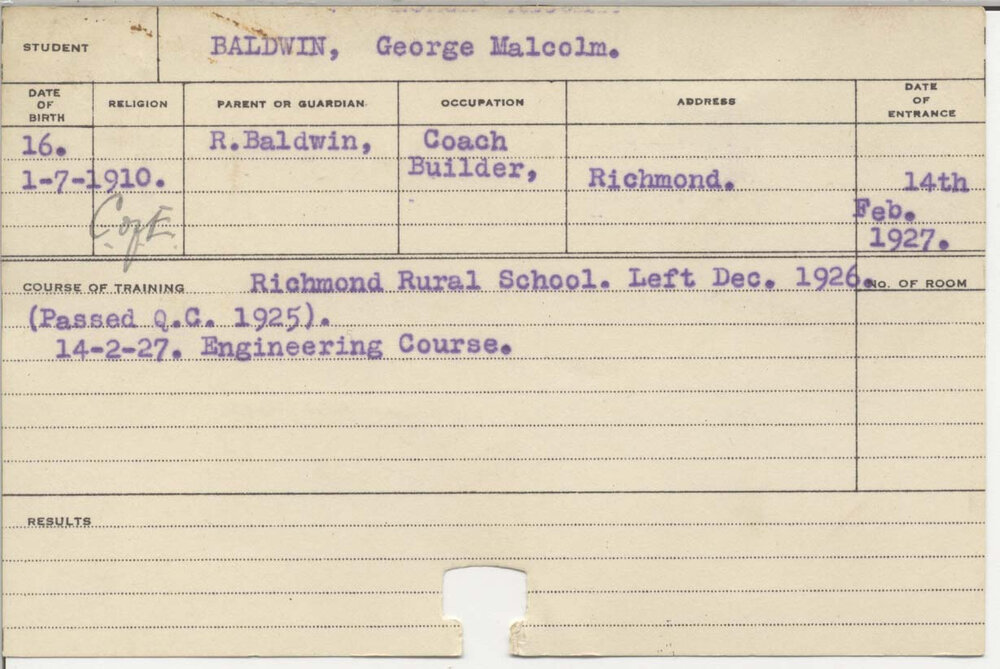 STUDENT BALDWIN, George Malcolm.
DATE OF BIRTH RELIGION PARENT OR GUARDIAN OCCUPATION ADDRESS DATE OF ENTRANCE
16. R.Baldwin, Coach
Builder,
1-7-1910. Richmond. 14th
Feb.
C of E.
1927.
COURSE OF TRAINING Richmond Rural School. Left Dec. 1926. No. OF ROOM
(Passed Q.C. 1925).
14-2-27. Engineering Course.
RESULTS